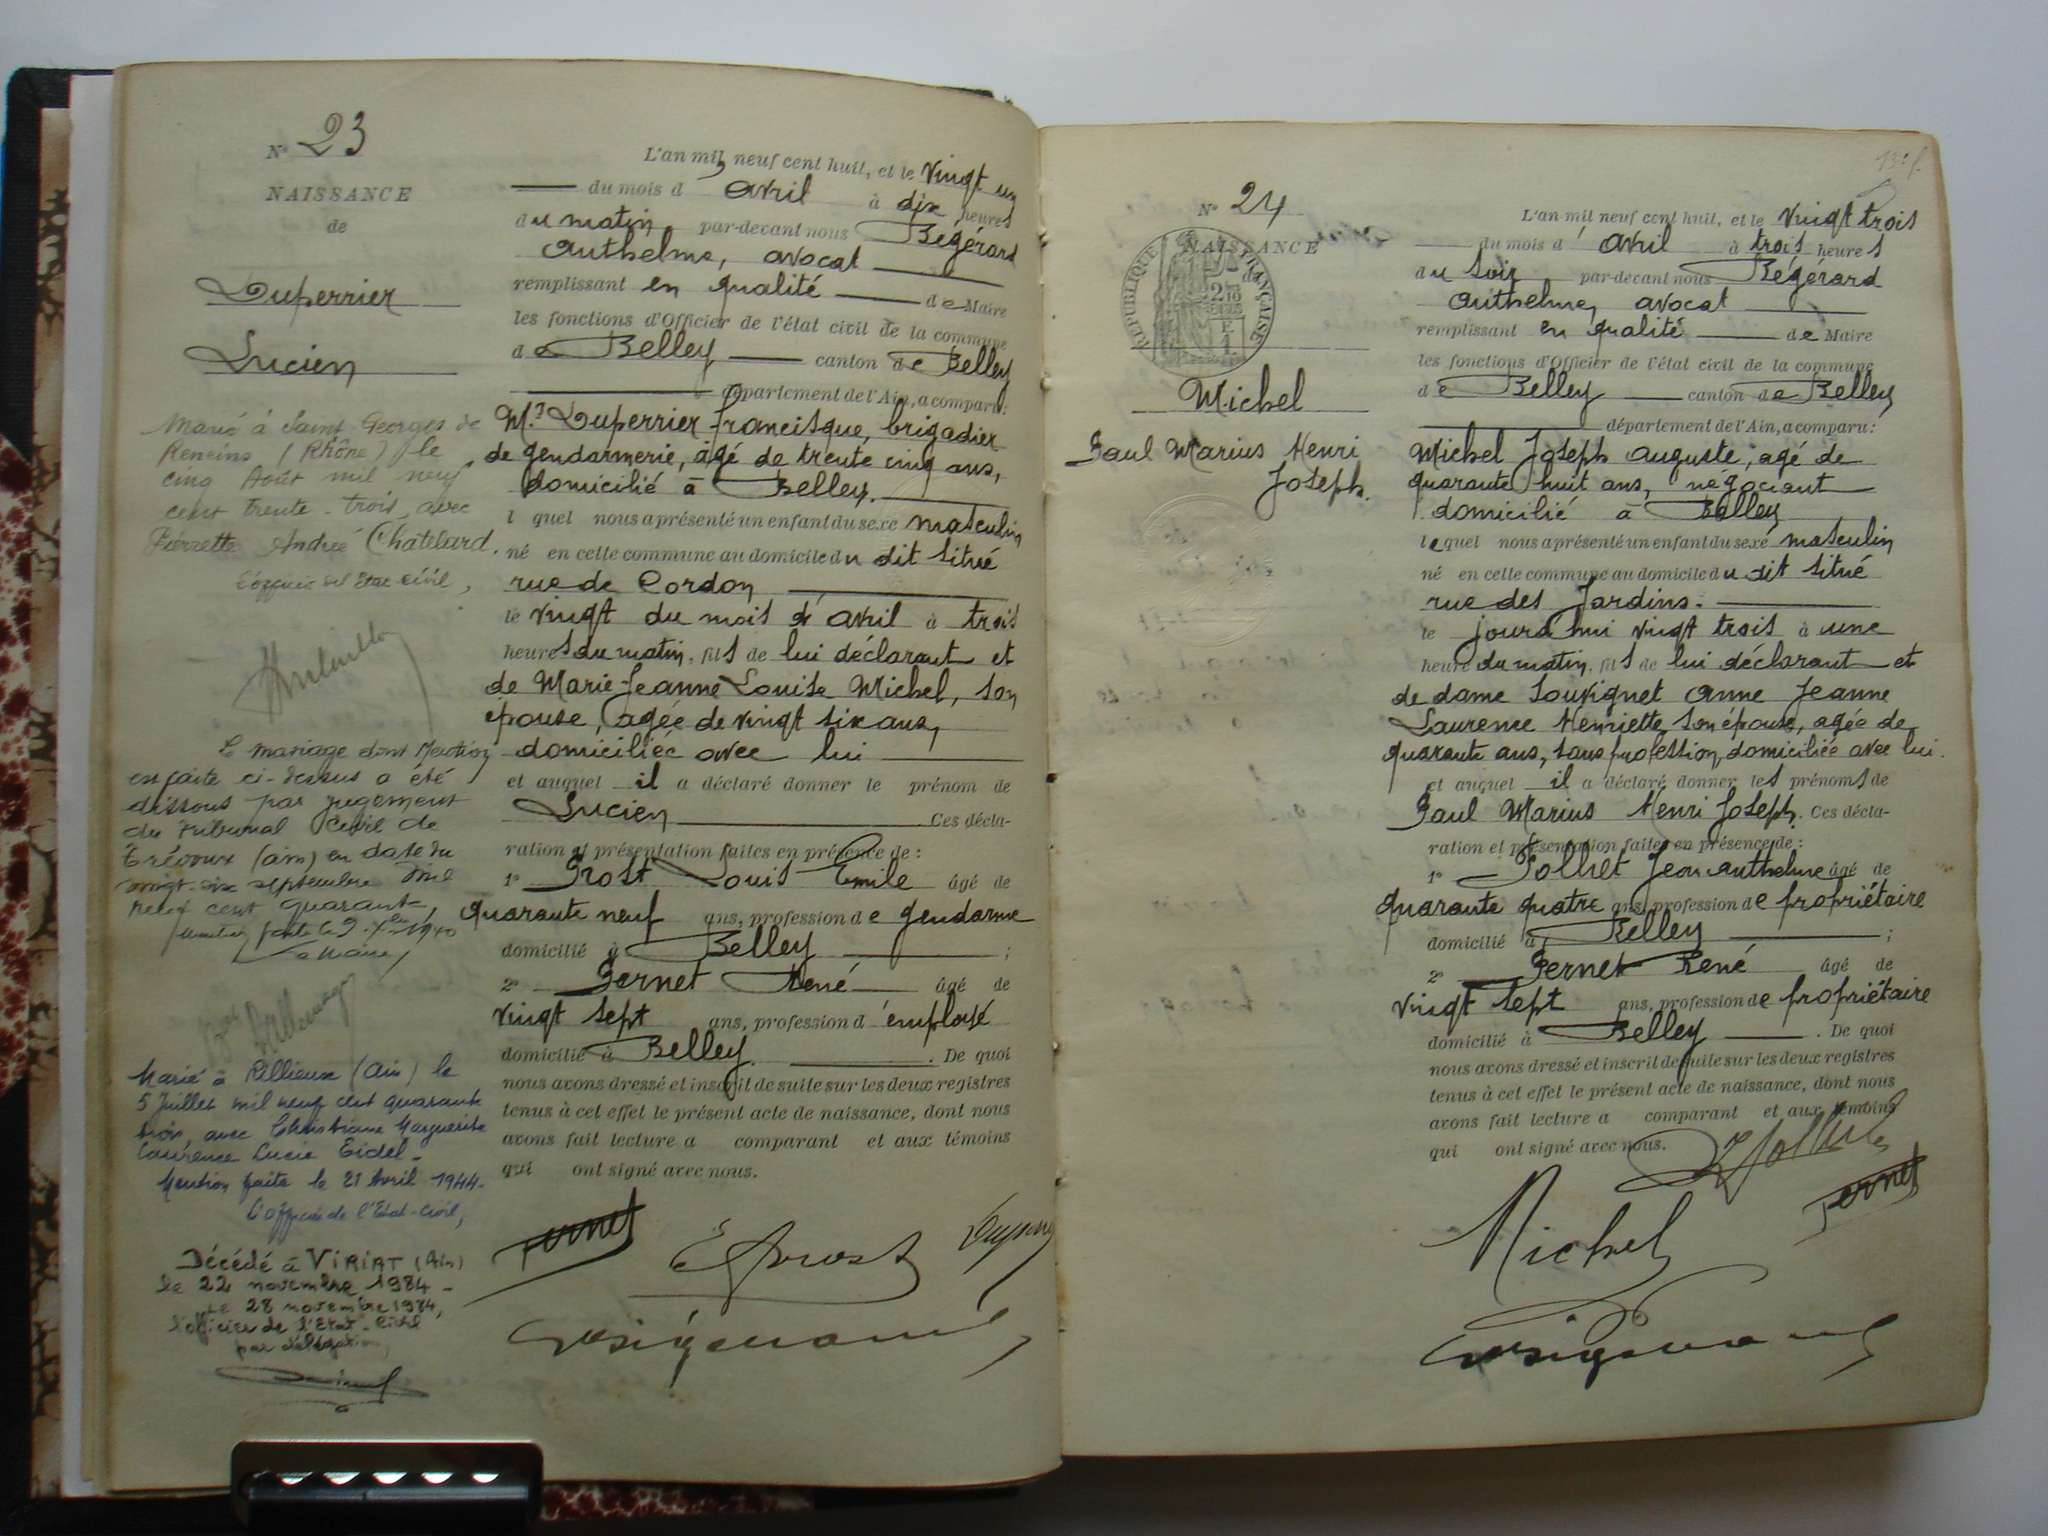 N° 23
NAISSANCE
de
Duperrier
Lucien
Marié à Saint Georges de
Reneins (Rhône) le
cinq Août mil neuf
cent trente-trois avec
Pierrette Andrée Chatelard.
L'officier de l'Etat-Civil,
Le mariage dont Mention
en faite ci-dessus a été
dissous par jugement
du Tribunal Civil de
Trévoux (ain) en date du
vingt-six septembre mil
neuf cent quarante,
Mention faite le 9. Xbre 1940
Le Maire,
Marié à Rillieux (Ain) le
5 Juillet mil neuf cent quarante
trois, avec Christiane Marguerite
Laurence Lucie Eidel -
Mention faite le 21 Avril 1944-
L'officier de l'Etat-Civil,
Décédé à VIRIAT (Ain)
le 22 novembre 1984 -
Le 28 novembre 1984,
l'officier de l'Etat-Civil
par délégation,
L'an mil neuf cent huit, et le vingt un
du mois d avril à dix heures
du matin par-devant nous Bégérard
Anthelme, avocat
remplissant en qualité de Maire
les fonctions d'Officier de l'état civil de la commune
de Belley canton de Belley
département de l'Ain, a comparu:
Mr Duperrier francisque, brigadier
de gendarmerie, âgé de trente cinq ans,
domicilié à Belley.
l quel nous a présenté un enfant du sexe masculin
né en cette commune au domicile du dit situé
rue de Cordon
le vingt du mois d'avril à trois
heures du matin, fils de lui déclarant et
de Marie-Jeanne Louise Michel, son
épouse, agée de vingt six ans,
domiciliée avec lui
et auquel il a déclaré donner le prénom de
Lucien Ces décla-
ration et présentation faites en présence de :
1° Prost Louis Emile âgé de
quarante neuf ans, profession de gendarme
domicilié à Belley ;
2° Pernet René âgé de
vingt sept ans, profession d'employé
domicilié à Belley. De quoi
nous avons dressé et inscrit de suite sur les deux registres
tenus à cet effet le présent acte de naissance, dont nous
avons fait lecture a comparant et aux témoins
qui ont signé avec nous.
Pernet E Prost
N° 24
NAISSANCE
de
RÉPUBLIQUE FRANÇAISE
Michel
Paul Marius Henri
Joseph.
L'an mil neuf cent huit, et le vingt trois
du mois d'avril à trois heures
du soir par-devant nous Bégérard
Anthelme, avocat
remplissant en qualité de Maire
les fonctions d'Officier de l'état civil de la commune
de Belley canton de Belley
département de l'Ain, a comparu :
Michel Joseph Auguste, agé de
quarante huit ans, négociant
domicilié à Belley
lequel nous a présenté un enfant du sexe masculin
né en cette commune au domicile du dit situé
rue des Jardins.
le jourd'hui vingt trois à une
heure du matin, fils de lui déclarant et
de dame Souvignet Anne Jeanne
Laurence Henriette, son épouse, agée de
quarante ans, sans profession, domiciliée avec lui.
et auquel il a déclaré donner les prénoms de
Paul Marius Henri Joseph. Ces décla-
ration et présentation faites en présence de :
1° Jean Anthelme âgé de
quarante quatre ans, profession de propriétaire
domicilié à Belley ;
2° Pernet René âgé de
vingt sept ans, profession de propriétaire
domicilié à Belley. De quoi
nous avons dressé et inscrit de suite sur les deux registres
tenus à cet effet le présent acte de naissance, dont nous
avons fait lecture a comparant et aux témoins
qui ont signé avec nous.
Pernet
Michel